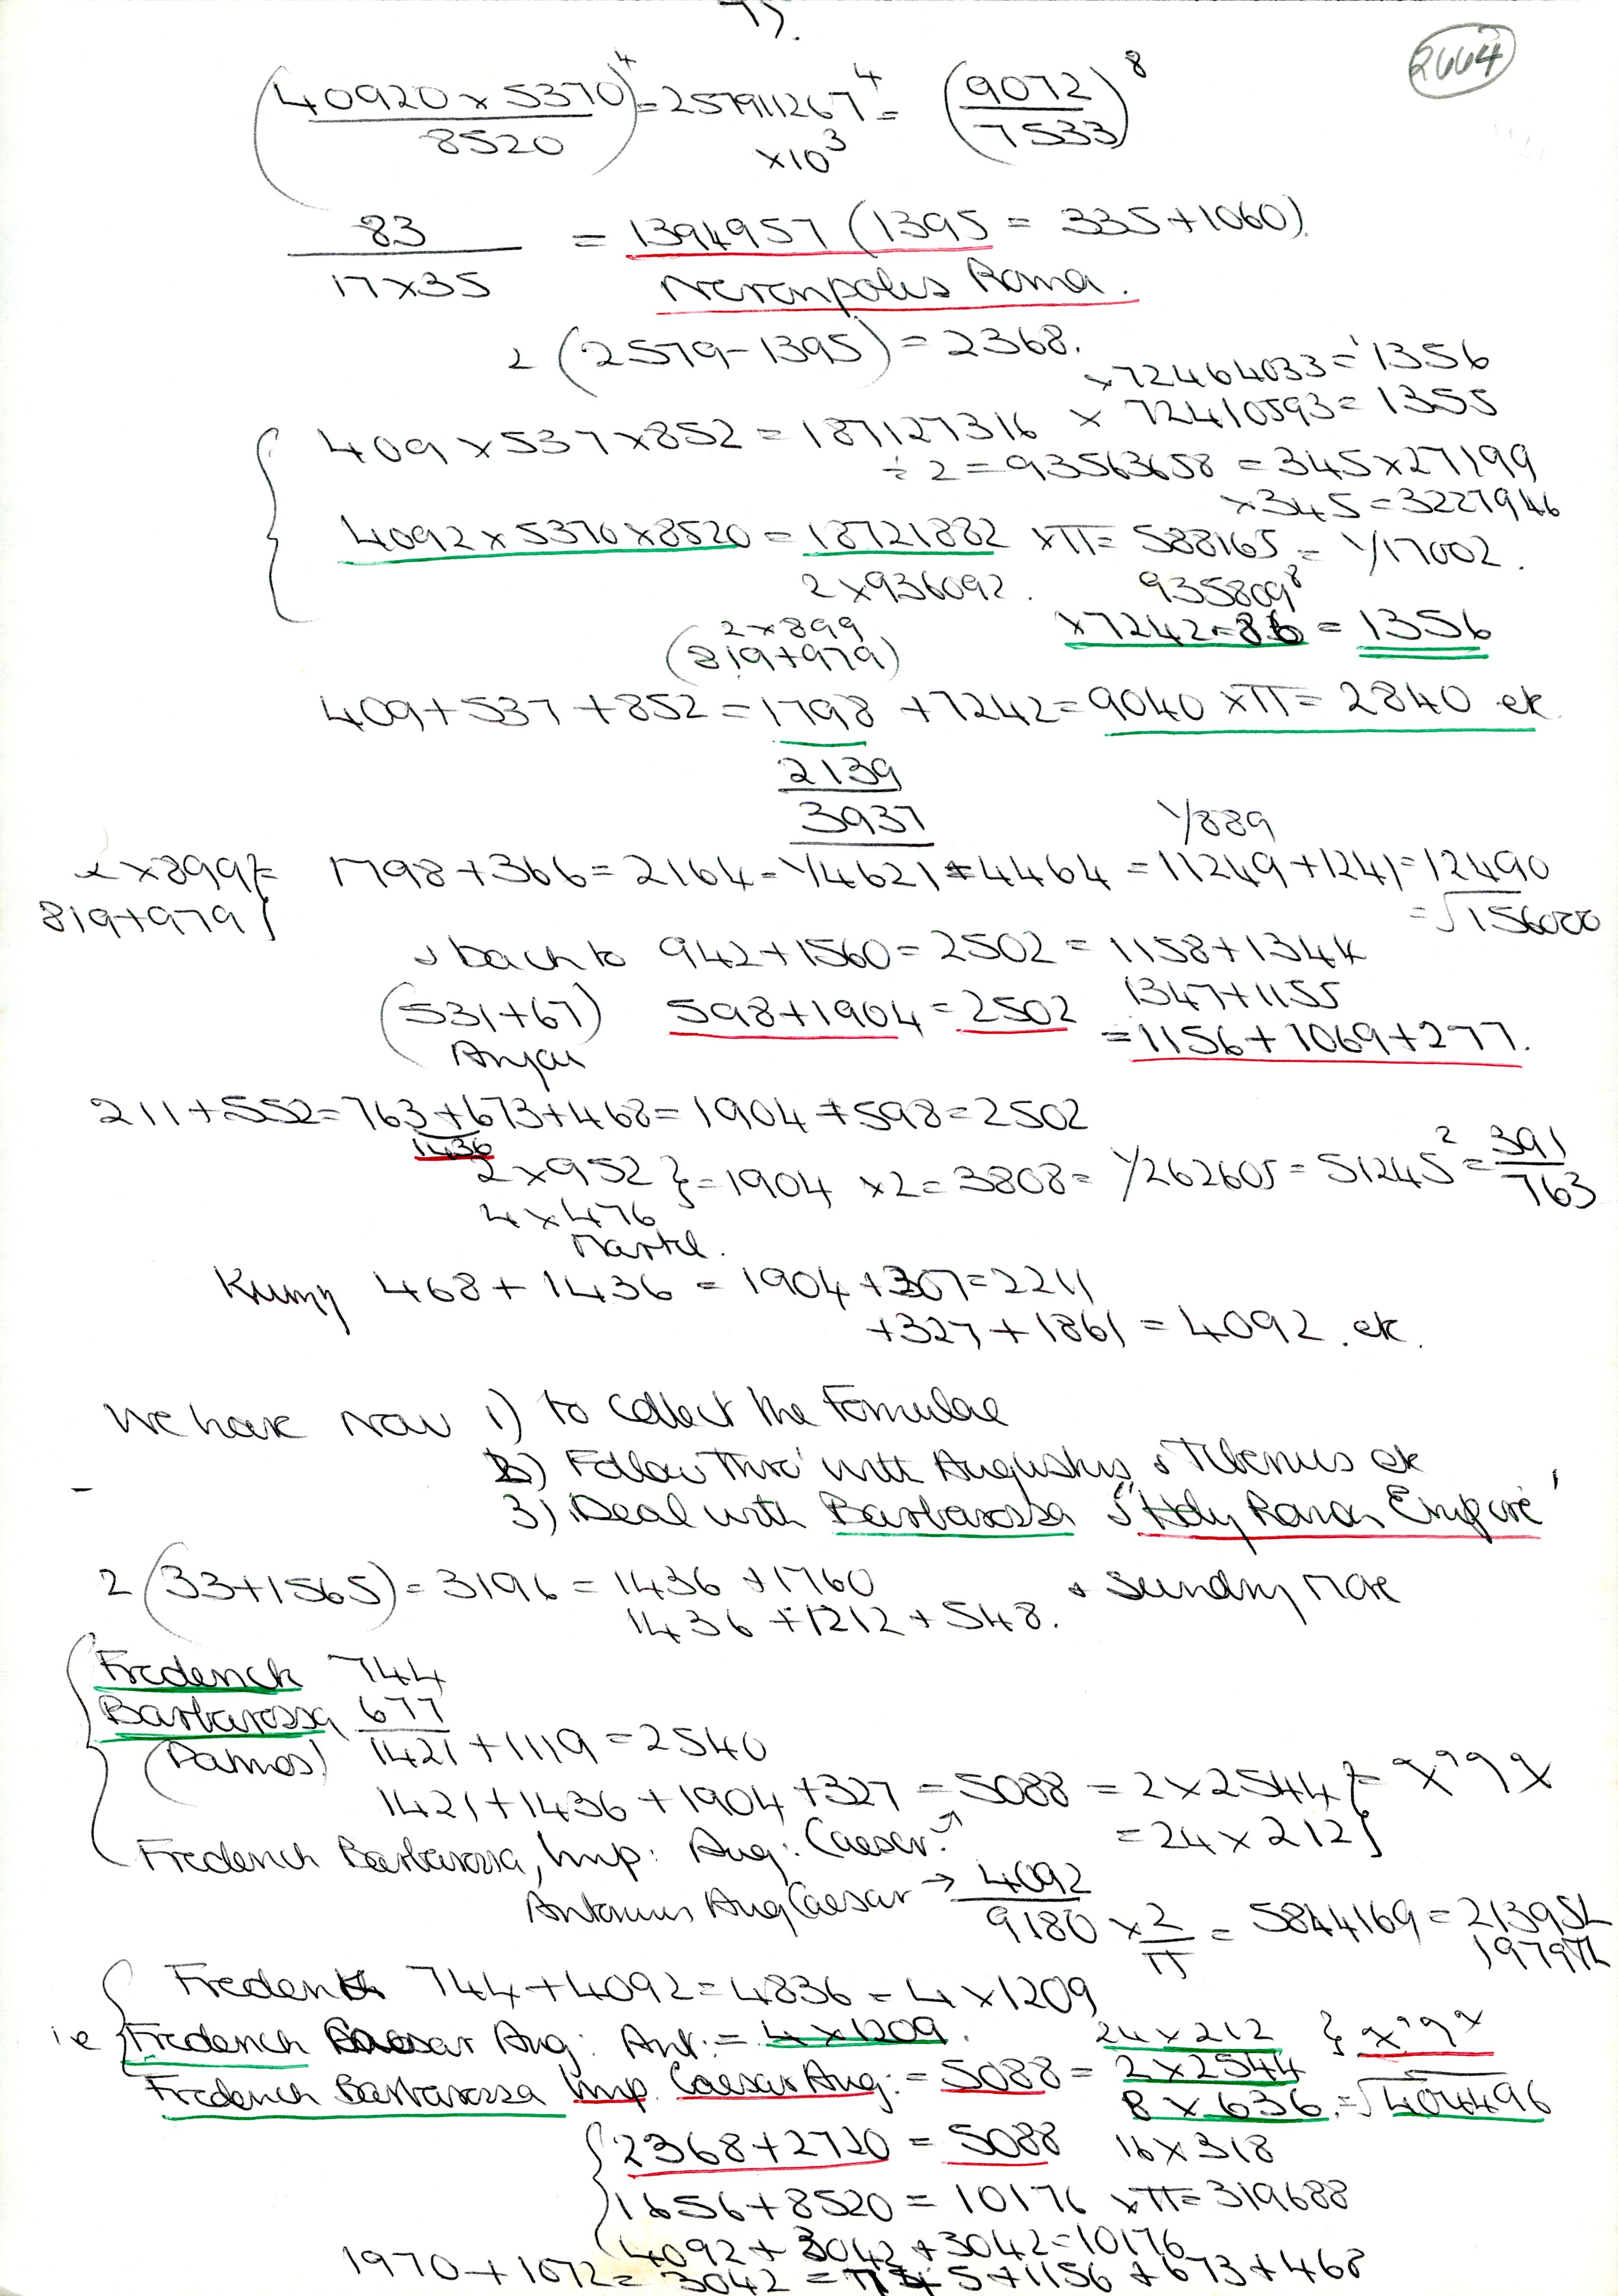 75.
2664
(40920 x 5370 / 8520)⁴ = 257911267⁴ x10³ = (9072 / 7533)⁸
83 / 17x35 = 1394957 (1395 = 335 + 1060)
Neronpolis Roma.
2 (2579 - 1395) = 2368.
x 72464033 = 1356
409 x 537 x 852 = 187127316 x 72410593 = 1355
÷ 2 = 93563658 = 345 x 27199
x 345 = 3227946
4092 x 5370 x 8520 = 18721882 xπ = 588165 = 1/17002.
2 x 936092. 935809⁸
2 x 899
(819 + 979)
x 7242-86 = 1356
409 + 537 + 852 = 1798 + 7242 = 9040 xπ = 2840 etc
2139
3937
1/889
2 x 899 } = 1798 + 366 = 2164 = 1/4621 + 4464 = 11249 + 1241 = 12490
819 + 979 } = √156000
& back to 942 + 1560 = 2502 = 1158 + 1344
1347 + 1155
(531 + 67) 598 + 1904 = 2502 = 1156 + 1069 + 277.
Anjou
211 + 552 = 763 + 673 + 468 = 1904 + 598 = 2502
1436
2 x 952 } = 1904 x 2 = 3808 = 1/262605 = 51245² = 391 / 763
4 x 476
Martel.
Kumy 468 + 1436 = 1904 + 307 = 2211
+ 327 + 1861 = 4092. etc.
We have now 1) to collect the Formulae
2) Follow Thro' with Augustus & Tiberius etc
3) Deal with Barbarossa & "Holy Roman Empire'
& Sundry More
2 (33 + 1565) = 3196 = 1436 + 1760
1436 + 1212 + 548.
Frederick 744
Barbarossa 677
(Patmos) 1421 + 1119 = 2540
1421 + 1436 + 1904 + 327 = 5088 = 2 x 2544 }
= 24 x 212 }
Frederick Barbarossa, Imp: Aug: Caesar.
Antonius Aug Caesar → 4092
9180 x 2/π = 5844169 = 2139SL
1979TL
Frederick 744 + 4092 = 4836 = 4 x 1209
i.e Frederick Caesar Aug: Ant: = 4 x 1209. 24 x 212
Frederick Barbarossa Imp. Caesar Aug: = 5088 = 2 x 2544
8 x 636. = √404496
2368 + 2720 = 5088 16 x 318
1656 + 8520 = 10176 xπ = 319688
4092 + 3042 + 3042 = 10176
1970 + 1072 = 3042 = 745 + 1156 + 673 + 468